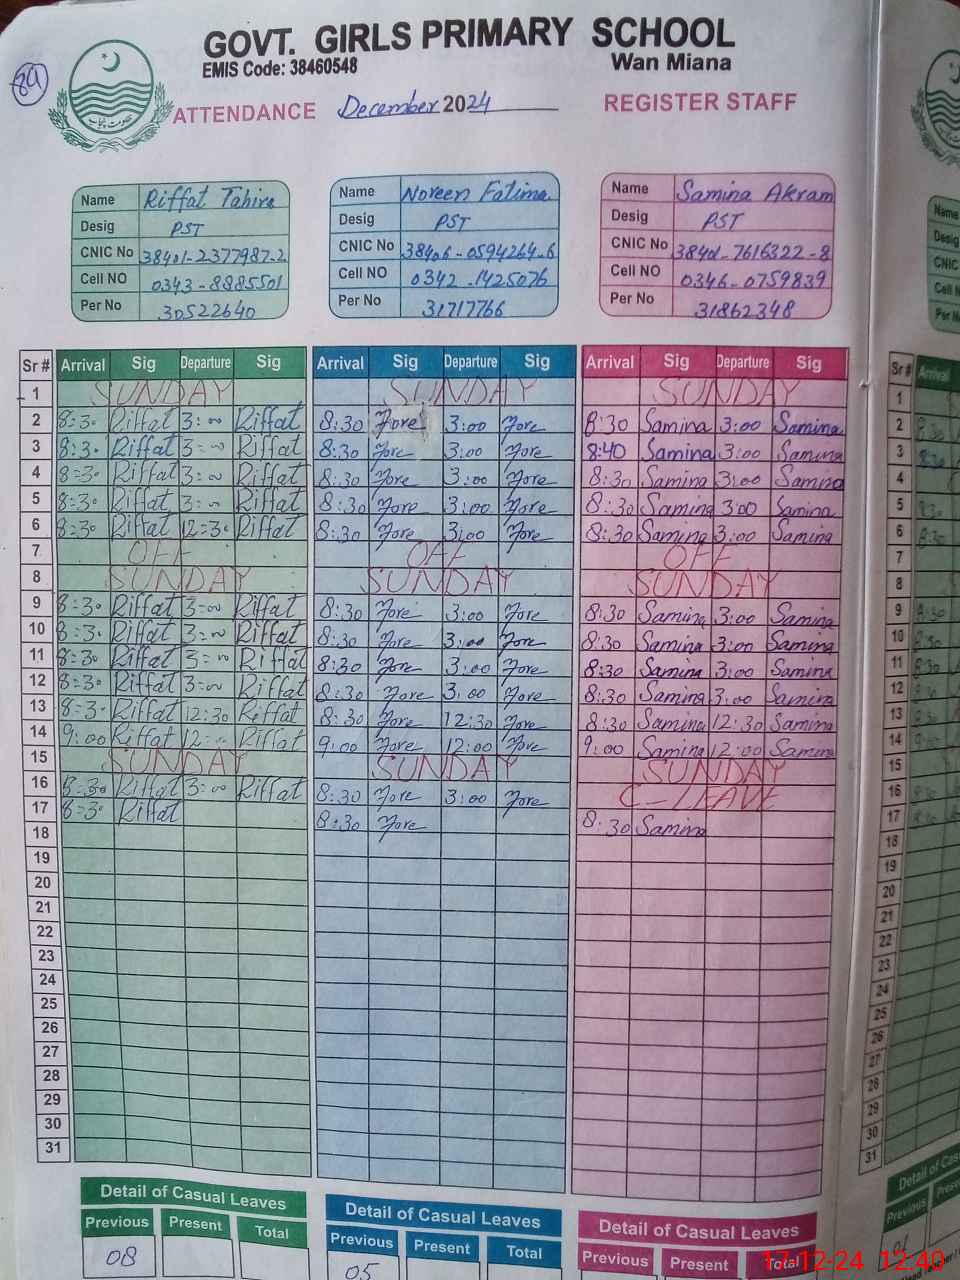 GOVT. GIRLS PRIMARY SCHOOL
EMIS Code: 38460548 Wan Miana
89
ATTENDANCE December 2024 REGISTER STAFF
حکومت پنجاب
Name Riffat Tahira Name Noreen Fatima Name Samina Akram
Desig PST Desig PST Desig PST
CNIC No 38401-2377987-2 CNIC No 38406-0594264-6 CNIC No 38401-7616322-8
Cell NO 0343-8885501 Cell NO 0342-1425076 Cell NO 0346-0759839
Per No 30522640 Per No 31717766 Per No 31862348
Sr # Arrival Sig Departure Sig Arrival Sig Departure Sig Arrival Sig Departure Sig
1 SUNDAY SUNDAY SUNDAY
2 8=30 Riffat 3=00 Riffat 8:30 Fore 3:00 Fore 8:30 Samina 3:00 Samina
3 8:30 Riffat 3=00 Riffat 8:30 Fore 3:00 Fore 8:40 Samina 3:00 Samina
4 8=30 Riffat 3=00 Riffat 8:30 Fore 3:00 Fore 8:30 Samina 3:00 Samina
5 8=30 Riffat 3=00 Riffat 8:30 Fore 3:00 Fore 8:30 Samina 3:00 Samina
6 8=30 Riffat 12=30 Riffat 8:30 Fore 3:00 Fore 8:30 Samina 3:00 Samina
7 OFF OFF OFF
8 SUNDAY SUNDAY SUNDAY
9 8=30 Riffat 3=00 Riffat 8:30 Fore 3:00 Fore 8:30 Samina 3:00 Samina
10 8=30 Riffat 3=00 Riffat 8:30 Fore 3:00 Fore 8:30 Samina 3:00 Samina
11 8=30 Riffat 3=00 Riffat 8:30 Fore 3:00 Fore 8:30 Samina 3:00 Samina
12 8=30 Riffat 3=00 Riffat 8:30 Fore 3:00 Fore 8:30 Samina 3:00 Samina
13 8=30 Riffat 12:30 Riffat 8:30 Fore 12:30 Fore 8:30 Samina 12:30 Samina
14 9:00 Riffat 12=00 Riffat 9:00 Fore 12:00 Fore 9:00 Samina 12:00 Samina
15 SUNDAY SUNDAY SUNDAY
16 8=30 Riffat 3=00 Riffat 8:30 Fore 3:00 Fore C-LEAVE
17 8=30 Riffat 8:30 Fore 8:30 Samina
18
19
20
21
22
23
24
25
26
27
28
29
30
31
Detail of Casual Leaves Detail of Casual Leaves Detail of Casual Leaves
Previous Present Total Previous Present Total Previous Present Total
08 05
17-12-24 12:40